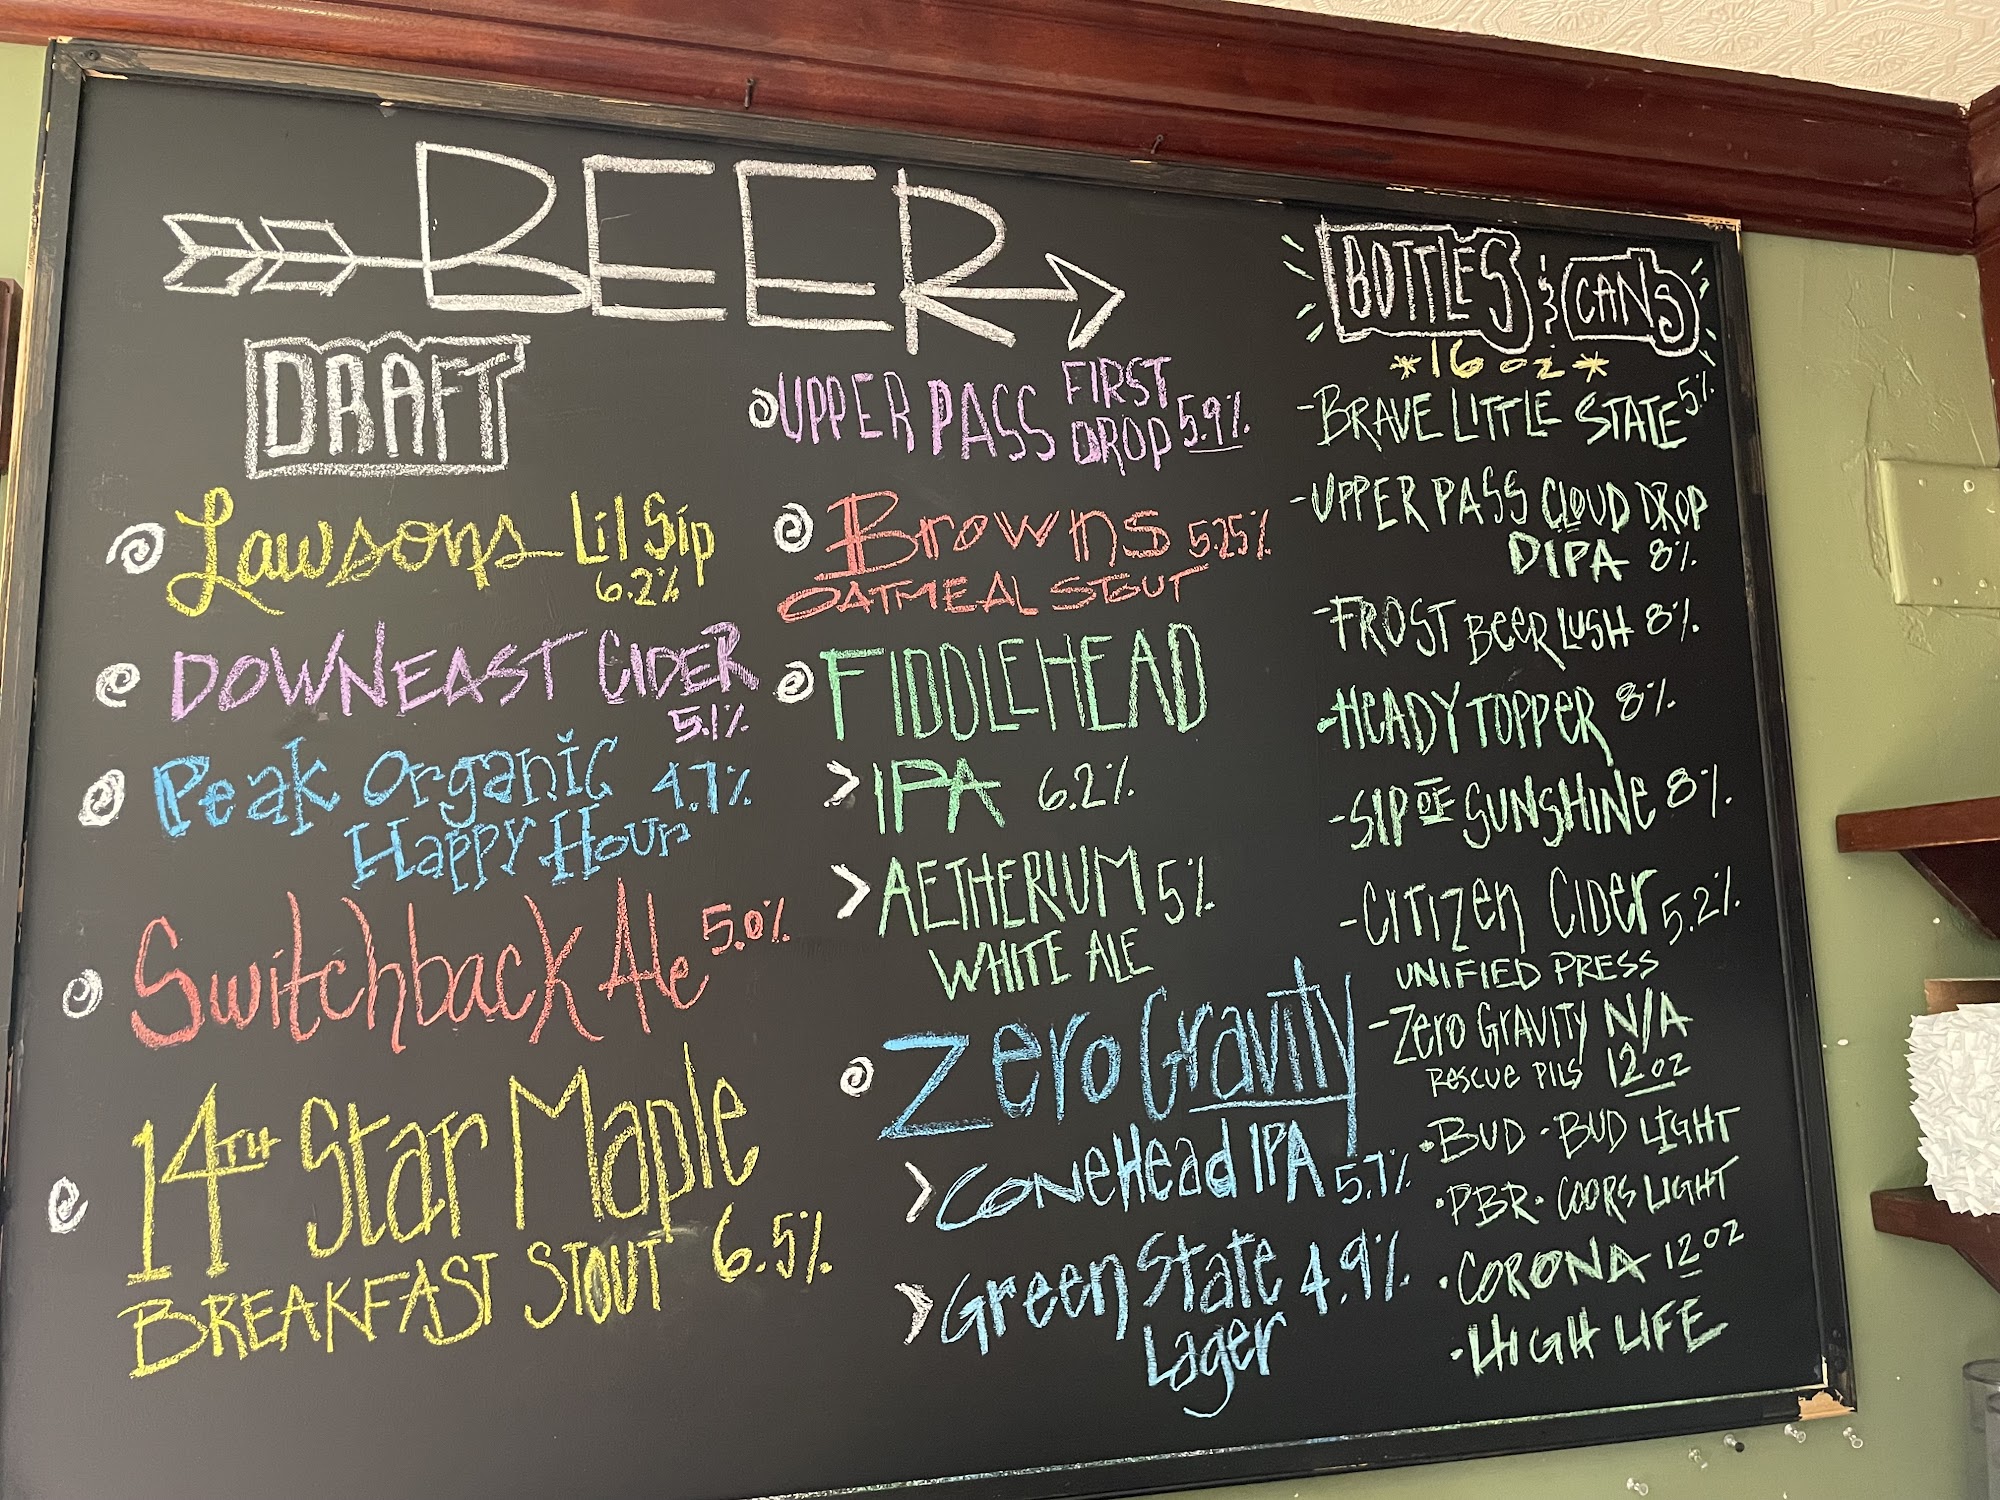 BEER
DRAFT
Lawsons Lil Sip
6.2%
DOWNEAST CIDER
5.1%
Peak Organic 4.7%
Happy Hour
Switchback Ale 5.0%
14TH Star Maple
BREAKFAST STOUT 6.5%
UPPER PASS FIRST
DROP 5.9%
Browns 5.25%
OATMEAL STOUT
FIDDLEHEAD
> IPA 6.2%
> AETHERIUM 5%
WHITE ALE
Zero Gravity
> CONEHEAD IPA 5.7%
> Green State 4.9%
Lager
BOTTLES & CANS
*16 oz*
-BRAVE LITTLE STATE 5%
-UPPER PASS CLOUD DROP
DIPA 8%
-FROST BEER LUSH 8%
-HEADY TOPPER 8%
-SIP OF SUNSHINE 8%
-CITIZEN CIDER 5.2%
UNIFIED PRESS
-ZERO GRAVITY N/A
RESCUE PILS 12 oz
·BUD ·BUD LIGHT
·PBR ·COORS LIGHT
·CORONA 12 oz
·HIGH LIFE